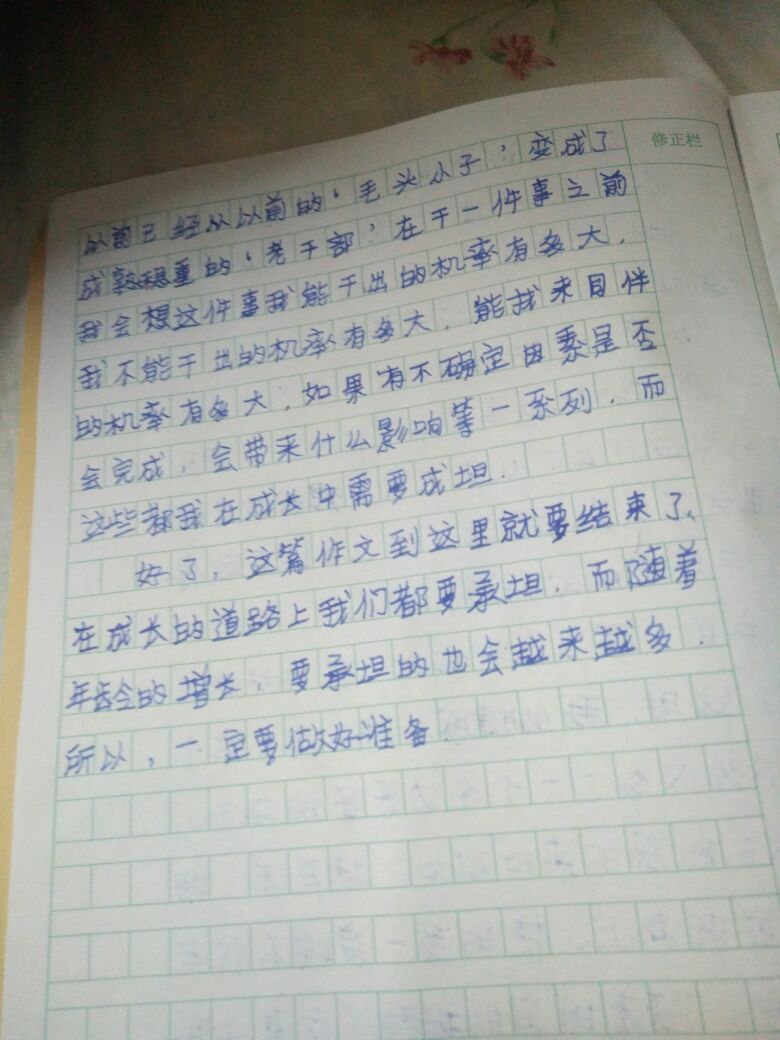 修正栏
以前已经从以前的‘毛头小子’变成了
成熟稳重的‘老干部’在干一件事之前
我会想这件事我能干出的机率有多大,
我不能干出的机率有多大,能找来目伴
的机率有多大,如果有不确定因素是否
会完成,会带来什么影响等一系列,而
这些都我在成长中需要成坦.
好了,这篇作文到这里就要结束了、
在成长的道路上我们都要承坦,而随着
年龄的增长,要承坦的也会越来越多.
所以,一定要做好准备